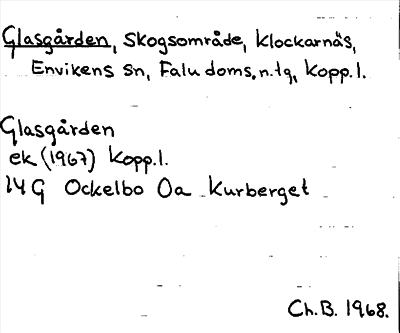 Glasgården, Skogsområde, Klockarnäs,
Envikens sn, Falu doms.n.tg, Kopp.l.
Glasgården
ek (1967) Kopp.l.
14 G Ockelbo Oa Kurberget
Ch.B. 1968.